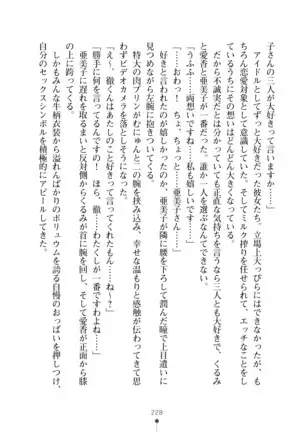 子さんの三人が大好きですから……」
アイドルとしてずっと大好きだった彼女たち、立場上大っぴらにはできないが、も
ちろん恋愛対象として意識していた。そしてミルク搾りを任され、エッチなことをし
ているうちにその想いはどんどん大きくなっていた。
だから不誠実とは分かっていても正直な気持ちを言うなら三人とも大好きで、くるみ
と愛香と亜美子が一番だった。誰か一人を選ぶなんてできない。
「うふふ……両想いですね……」
「……おわっ！　ちょ、ちょっと……亜美子さん……」
大好きと言われたのが嬉しかったのか、亜美子が隣に腰を下ろして潤んだ瞳で上目遣いに
見つめながら左腕に抱きついてくる。
特大の肉プリンがむにゅんと二の腕を挟み込み、幸せな温もりと感触が伝わって思
わずビデオカメラを落としそうになった。
「ん～？　徹くんはあたしのこと好きって言ってくれたもん……ねぇ～？」
「勝手に何を言ってるんですの！　ほら、徹……わたくしが一番ですわよね……」
亜美子に遅れを取るまいと反対側からくるみが腕に抱きつき、そして愛香が正面から膝
の上に跨ってくる。
しかもみんな牛柄衣装から溢れんばかりのボリュウムを誇る自慢のおっぱいを押しつけ、
自分のセックスシンボルを積極的にアピールしてきた。
228